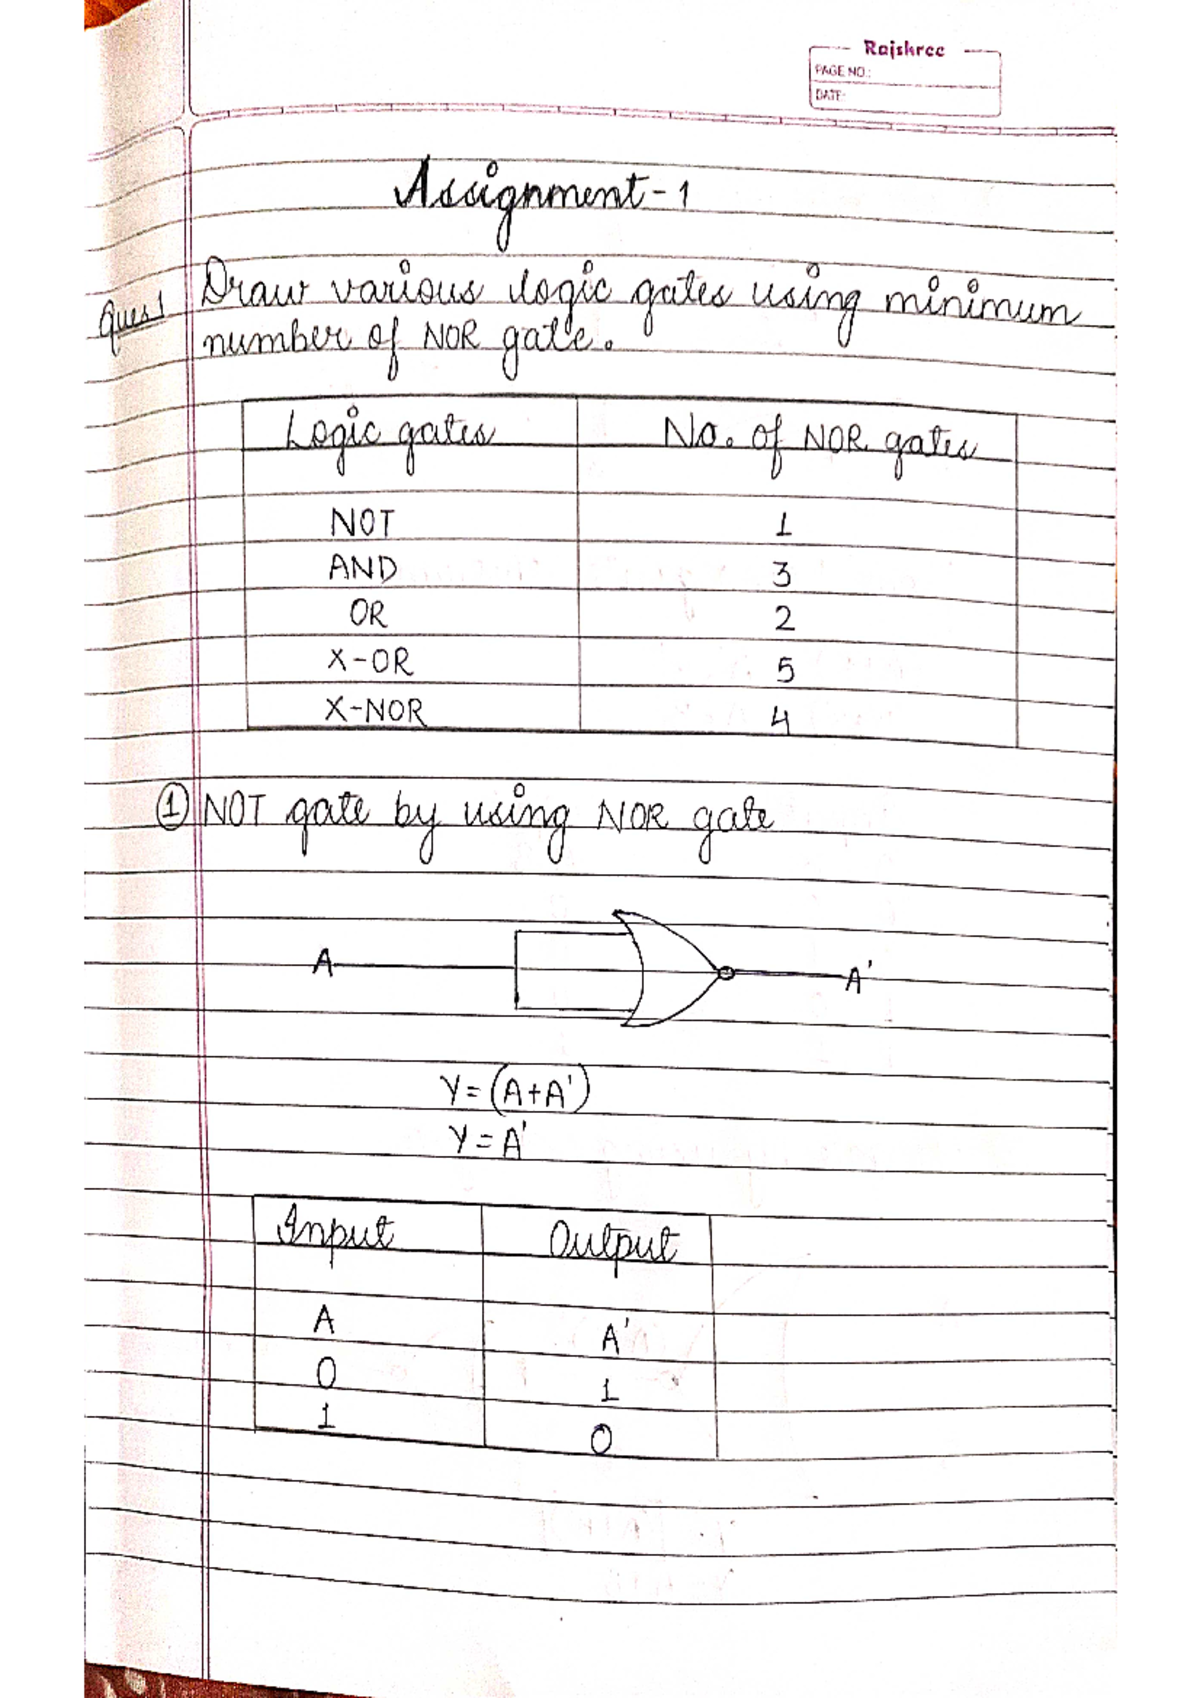 Rajshree
PAGE NO.:
DATE:
Assignment-1
Ques1 Draw various logic gates using minimum
number of NOR gate.
Logic gates No. of NOR gates
NOT 1
AND 3
OR 2
X-OR 5
X-NOR 4
① NOT gate by using NOR gate
A A'
Y = (A+A')
Y = A'
Input Output
A A'
0 1
1 0